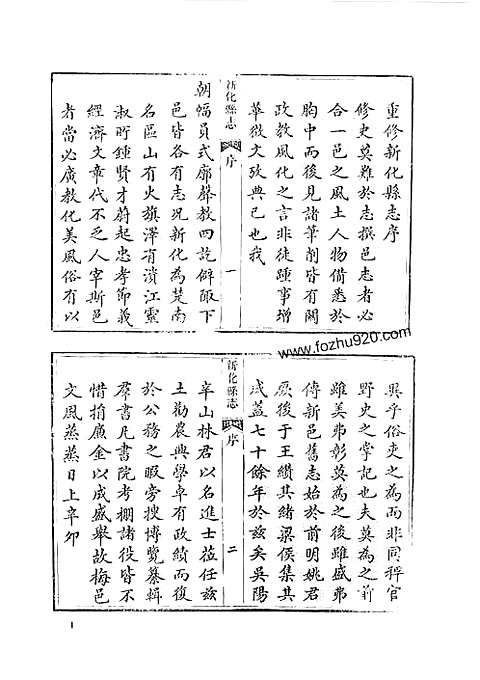 重修新化縣志序
修史莫難於志撰邑志者必
合一邑之風土人物備悉於
胸中而後見諸筆削皆有關
政教風化之言非徒踵事增
華徵文攷典已也我
新化縣志
序
一
朝幅員式廓聲教四訖僻陬下
邑皆各有志況新化為楚南
名區山有火旗澤有濆江靈
淑所鍾賢才蔚起忠孝節義
經濟文章代不乏人宰斯邑
者當必廣教化美風俗有以
異乎俗吏之為而非同稗官
野史之掌記也夫莫為之前
雖美弗彰莫為之後雖盛弗
傳新邑舊志始於前明姚君
厥後于王纘其緒梁侯集其
成蓋七十餘年於茲矣吳陽
新化縣志
序
二
辛山林君以名進士蒞任茲
土勸農興學卓有政績而復
於公務之暇旁搜博覽纂輯
羣書凡書院考棚諸役皆不
惜捐廉金以成盛舉故梅邑
文風蒸蒸日上辛卯
www.fozhu920.com
1